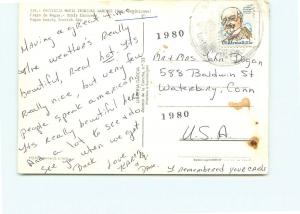 Having a great time.
The weather's Really
beautiful, real hot. Its
Really nice, but very few
people speak american.
Its really beautiful here
And a lot to see & do
See ya when we get
Back Love,
1980
Mr + Mrs John Dugan
588 Baldwin St
Waterbury, Conn
1980
U.S.A.
I remembered your cards